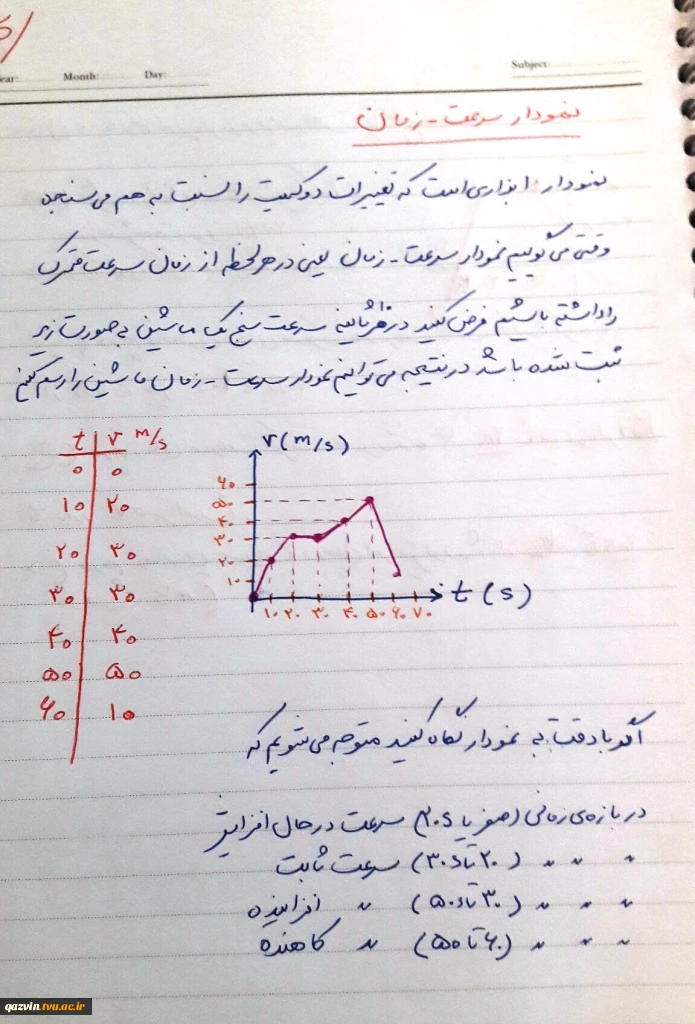 Year: Month: Day: Subject:
نمودار سرعت - زمان
نمودار ابزاری است که تغییرات دو کمیت را نسبت به هم می سنجد
وقتی می گوییم نمودار سرعت - زمان یعنی در هر لحظه از زمان سرعت متحرک
را داشته باشیم فرض کنید در هر ثانیه سرعت سنج یک ماشین به صورت زیر
ثبت شده باشد در نتیجه می توانیم نمودار سرعت - زمان ماشین را رسم کنیم
t v m/s
۰ ۰
۱۰ ۲۰
۲۰ ۳۰
۳۰ ۳۰
۴۰ ۴۰
۵۰ ۵۰
۶۰ ۱۰
v(m/s)
۶۰
۵۰
۴۰
۳۰
۲۰
۱۰
۱۰ ۲۰ ۳۰ ۴۰ ۵۰ ۶۰ ۷۰
t (s)
اگر با دقت به نمودار نگاه کنید متوجه می شویم که
در بازه ی زمانی (صفر تا ۲۰s) سرعت در حال افزایش
" " " (۲۰ تا ۳۰s) سرعت ثابت
" " " (۳۰ تا ۵۰s) " افزاینده
" " " (۵۰ تا ۶۰) " کاهنده
qazvin.tvu.ac.ir